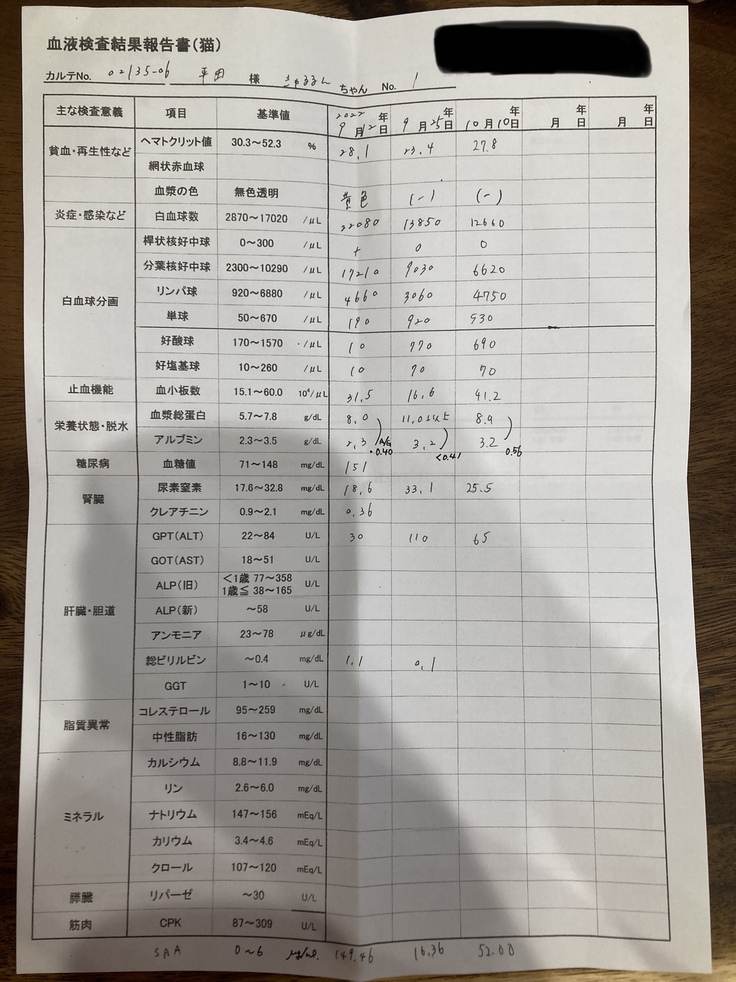 血液検査結果報告書(猫)
カルテNo. 02135-06 平田 様 きゅるるん ちゃん No. 1
主な検査意義 項目 基準値 2022年9月12日 年9月25日 年10月10日 年月日 年月日
貧血・再生性など ヘマトクリット値 30.3~52.3 % 28.1 23.4 27.8
網状赤血球
血漿の色 無色透明 黄色 (-) (-)
炎症・感染など 白血球数 2870~17020 /μL 22080 13850 12660
白血球分画 桿状核好中球 0~300 /μL + 0 0
分葉核好中球 2300~10290 /μL 17210 9030 6620
リンパ球 920~6880 /μL 4660 3060 4750
単球 50~670 /μL 190 920 530
好酸球 170~1570 /μL 10 770 690
好塩基球 10~260 /μL 10 70 70
止血機能 血小板数 15.1~60.0 10⁴/μL 31.5 16.6 41.2
栄養状態・脱水 血漿総蛋白 5.7~7.8 g/dL 8.0 11.0以上 8.9
アルブミン 2.3~3.5 g/dL 2.3 A/G 0.40 3.2 <0.41 3.2 0.56
糖尿病 血糖値 71~148 mg/dL 151
腎臓 尿素窒素 17.6~32.8 mg/dL 18.6 33.1 25.5
クレアチニン 0.9~2.1 mg/dL 0.36
肝臓・胆道 GPT(ALT) 22~84 U/L 30 110 65
GOT(AST) 18~51 U/L
ALP(旧) <1歳 77~358 1歳≦ 38~165 U/L
ALP(新) ~58 U/L
アンモニア 23~78 μg/dL
総ビリルビン ~0.4 mg/dL 1.1 0.1
GGT 1~10 U/L
脂質異常 コレステロール 95~259 mg/dL
中性脂肪 16~130 mg/dL
ミネラル カルシウム 8.8~11.9 mg/dL
リン 2.6~6.0 mg/dL
ナトリウム 147~156 mEq/L
カリウム 3.4~4.6 mEq/L
クロール 107~120 mEq/L
膵臓 リパーゼ ~30 U/L
筋肉 CPK 87~309 U/L
SAA 0~6 μg/mL 149.46 16.36 52.00